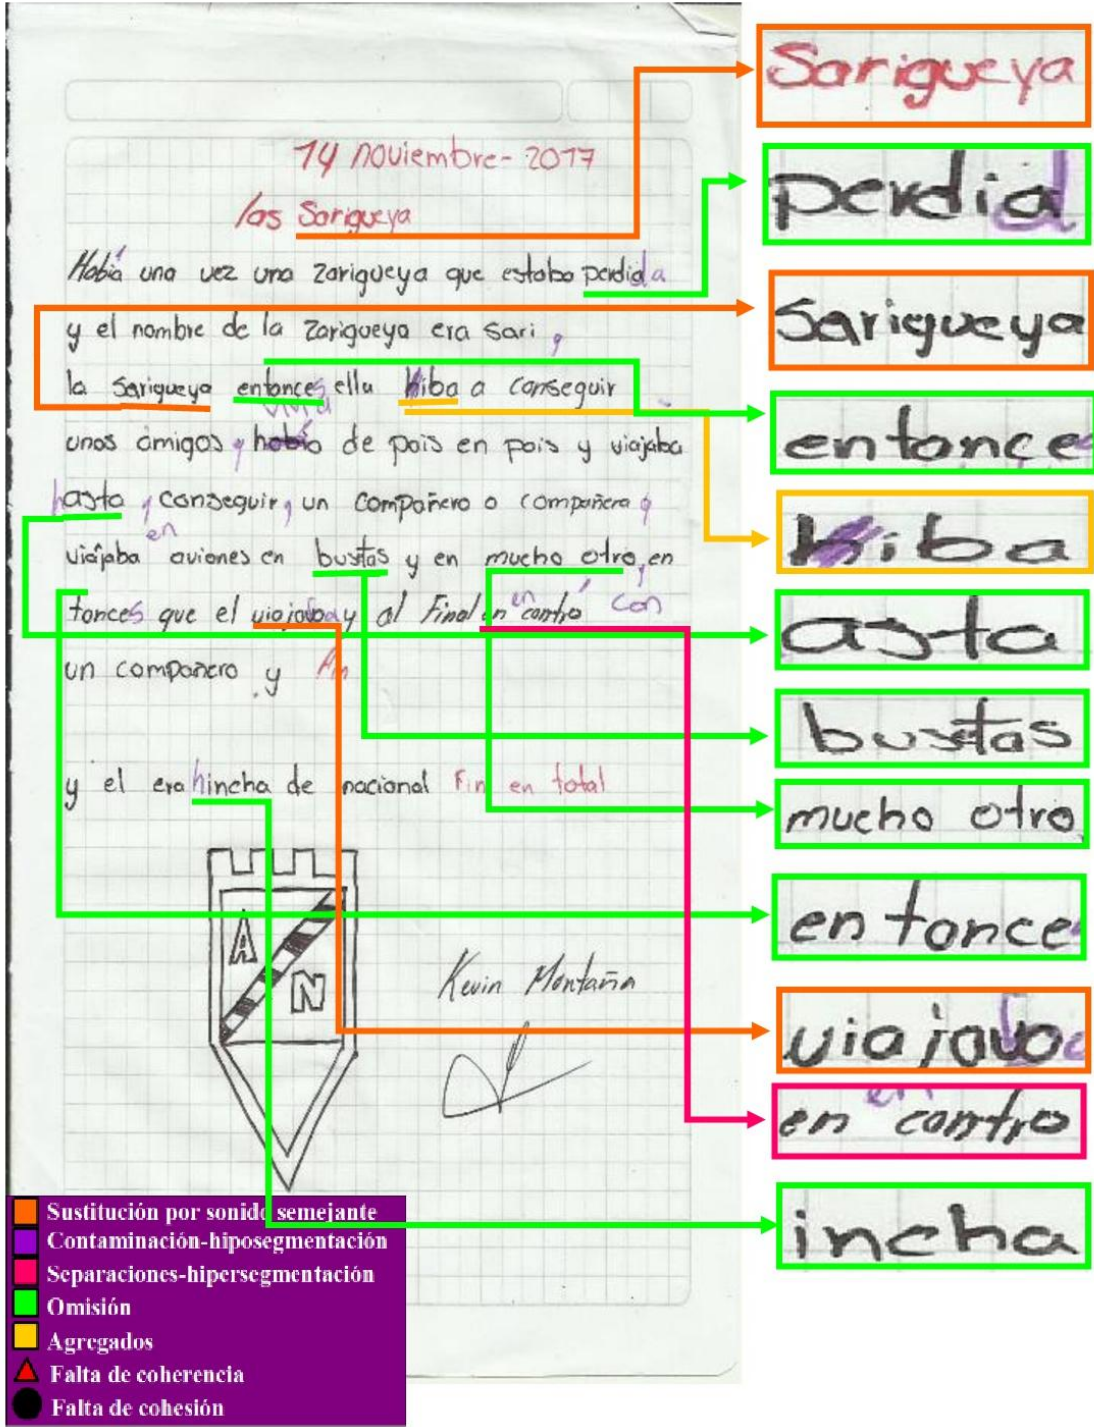 14 noviembre - 2017
las Sarigueya
Había una vez una zarigueya que estaba perdida
y el nombre de la zarigueya era sari,
la sarigueya entonces ella hiba a conseguir
vivia
unos amigos y había de pais en pais y viajaba
hasta y conseguir, un compañero o compañera y
en
viajaba aviones en bustas y en mucho otro, en
tonces que el viajava y al Final en contró con
en
un compañero y Fin
y el era hincha de nacional Fin en total
A
N
Kevin Montaña
Sarigueya
perdia
Sarigueya
entonce
hiba
asta
bustas
mucho otro
entonce
viajava
en contro
en
incha
Sustitución por sonido semejante
Contaminación-hiposegmentación
Separaciones-hipersegmentación
Omisión
Agregados
Falta de coherencia
Falta de cohesión